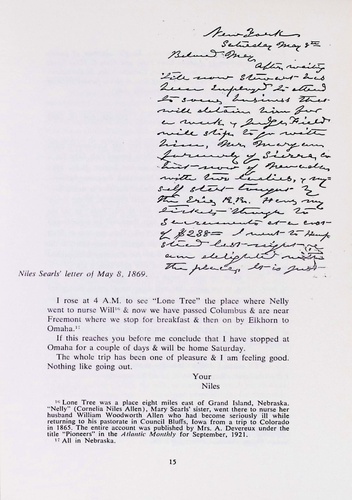 New York
Saturday May 8th
Beloved Mary
After waiting
till now Stewart has
been employed to attend
to some business that
will detain him for
a week & Judge Field
will stop to go with
him, Mr. Maryam
formerly of Sierra, co
but now of Nevada
with two ladies, & my
self start tonight by
the Erie R.R. Have my
tickets through to
Sacramento at a cost
of $238= I went to Hemp
stead last night &
am delighted with
the place. It is just
Niles Searls' letter of May 8, 1869.
I rose at 4 A.M. to see "Lone Tree" the place where Nelly
went to nurse Will¹⁶ & now we have passed Columbus & are near
Freemont where we stop for breakfast & then on by Elkhorn to
Omaha.¹⁷
If this reaches you before me conclude that I have stopped at
Omaha for a couple of days & will be home Saturday.
The whole trip has been one of pleasure & I am feeling good.
Nothing like going out.
Your
Niles
¹⁶ Lone Tree was a place eight miles east of Grand Island, Nebraska.
"Nelly" (Cornelia Niles Allen), Mary Searls' sister, went there to nurse her
husband William Woodworth Allen who had become seriously ill while
returning to his pastorate in Council Bluffs, Iowa from a trip to Colorado
in 1865. The entire account was published by Mrs. A. Devereux under the
title "Pioneers" in the Atlantic Monthly for September, 1921.
¹⁷ All in Nebraska.
15